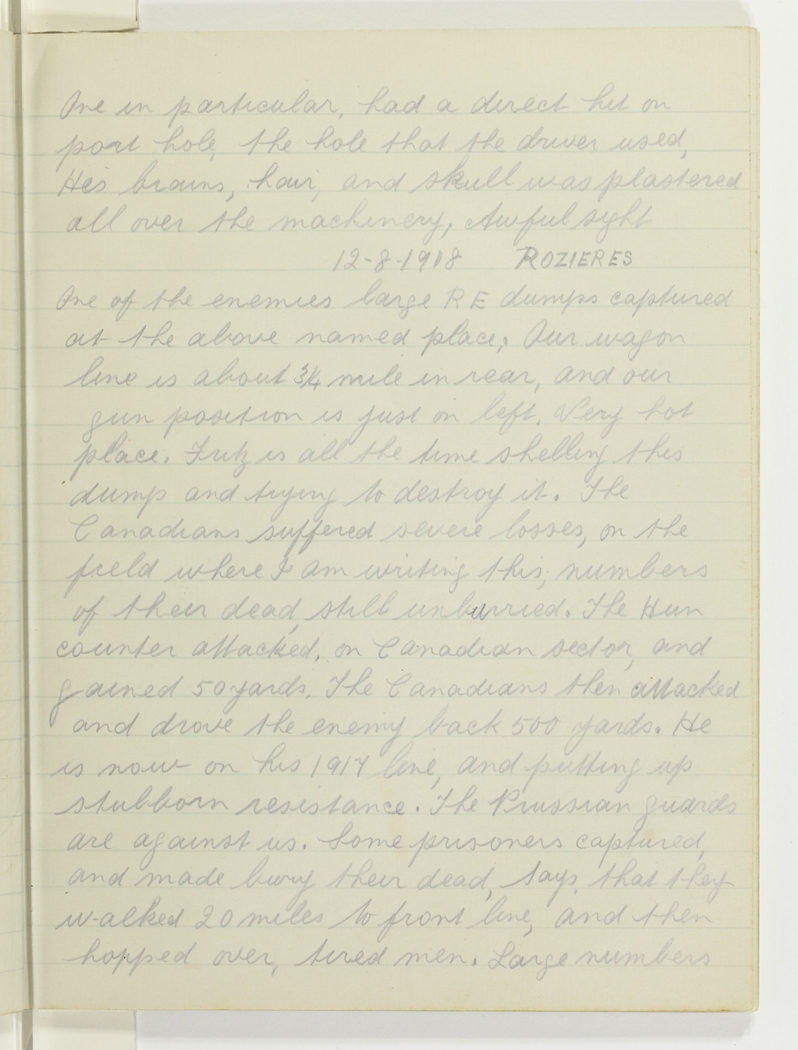 One in particular, had a direct hit on
port hole, the hole that the driver used,
His brains, hair, and skull was plastered
all over the machinery, Awful sight
12-8-1918 ROZIERES
One of the enemies large R E dumps captured
at the above named place, Our wagon
line is about 3/4 mile in rear, and our
gun position is just on left. Very hot
place. Fritz is all the time shelling this
dump and trying to destroy it. The
Canadians suffered severe losses, on the
field where I am writing this, numbers
of their dead, still unburried. The Hun
counter attacked, on Canadian sector, and
gained 50 yards. The Canadians then attacked
and drove the enemy back 500 yards. He
is now on his 1917 line, and putting up
stubborn resistance. The Prussian guards
are against us. Some prisoners captured,
and made bury their dead, says, that they
walked 20 miles to front line, and then
hopped over, tired men. Large numbers